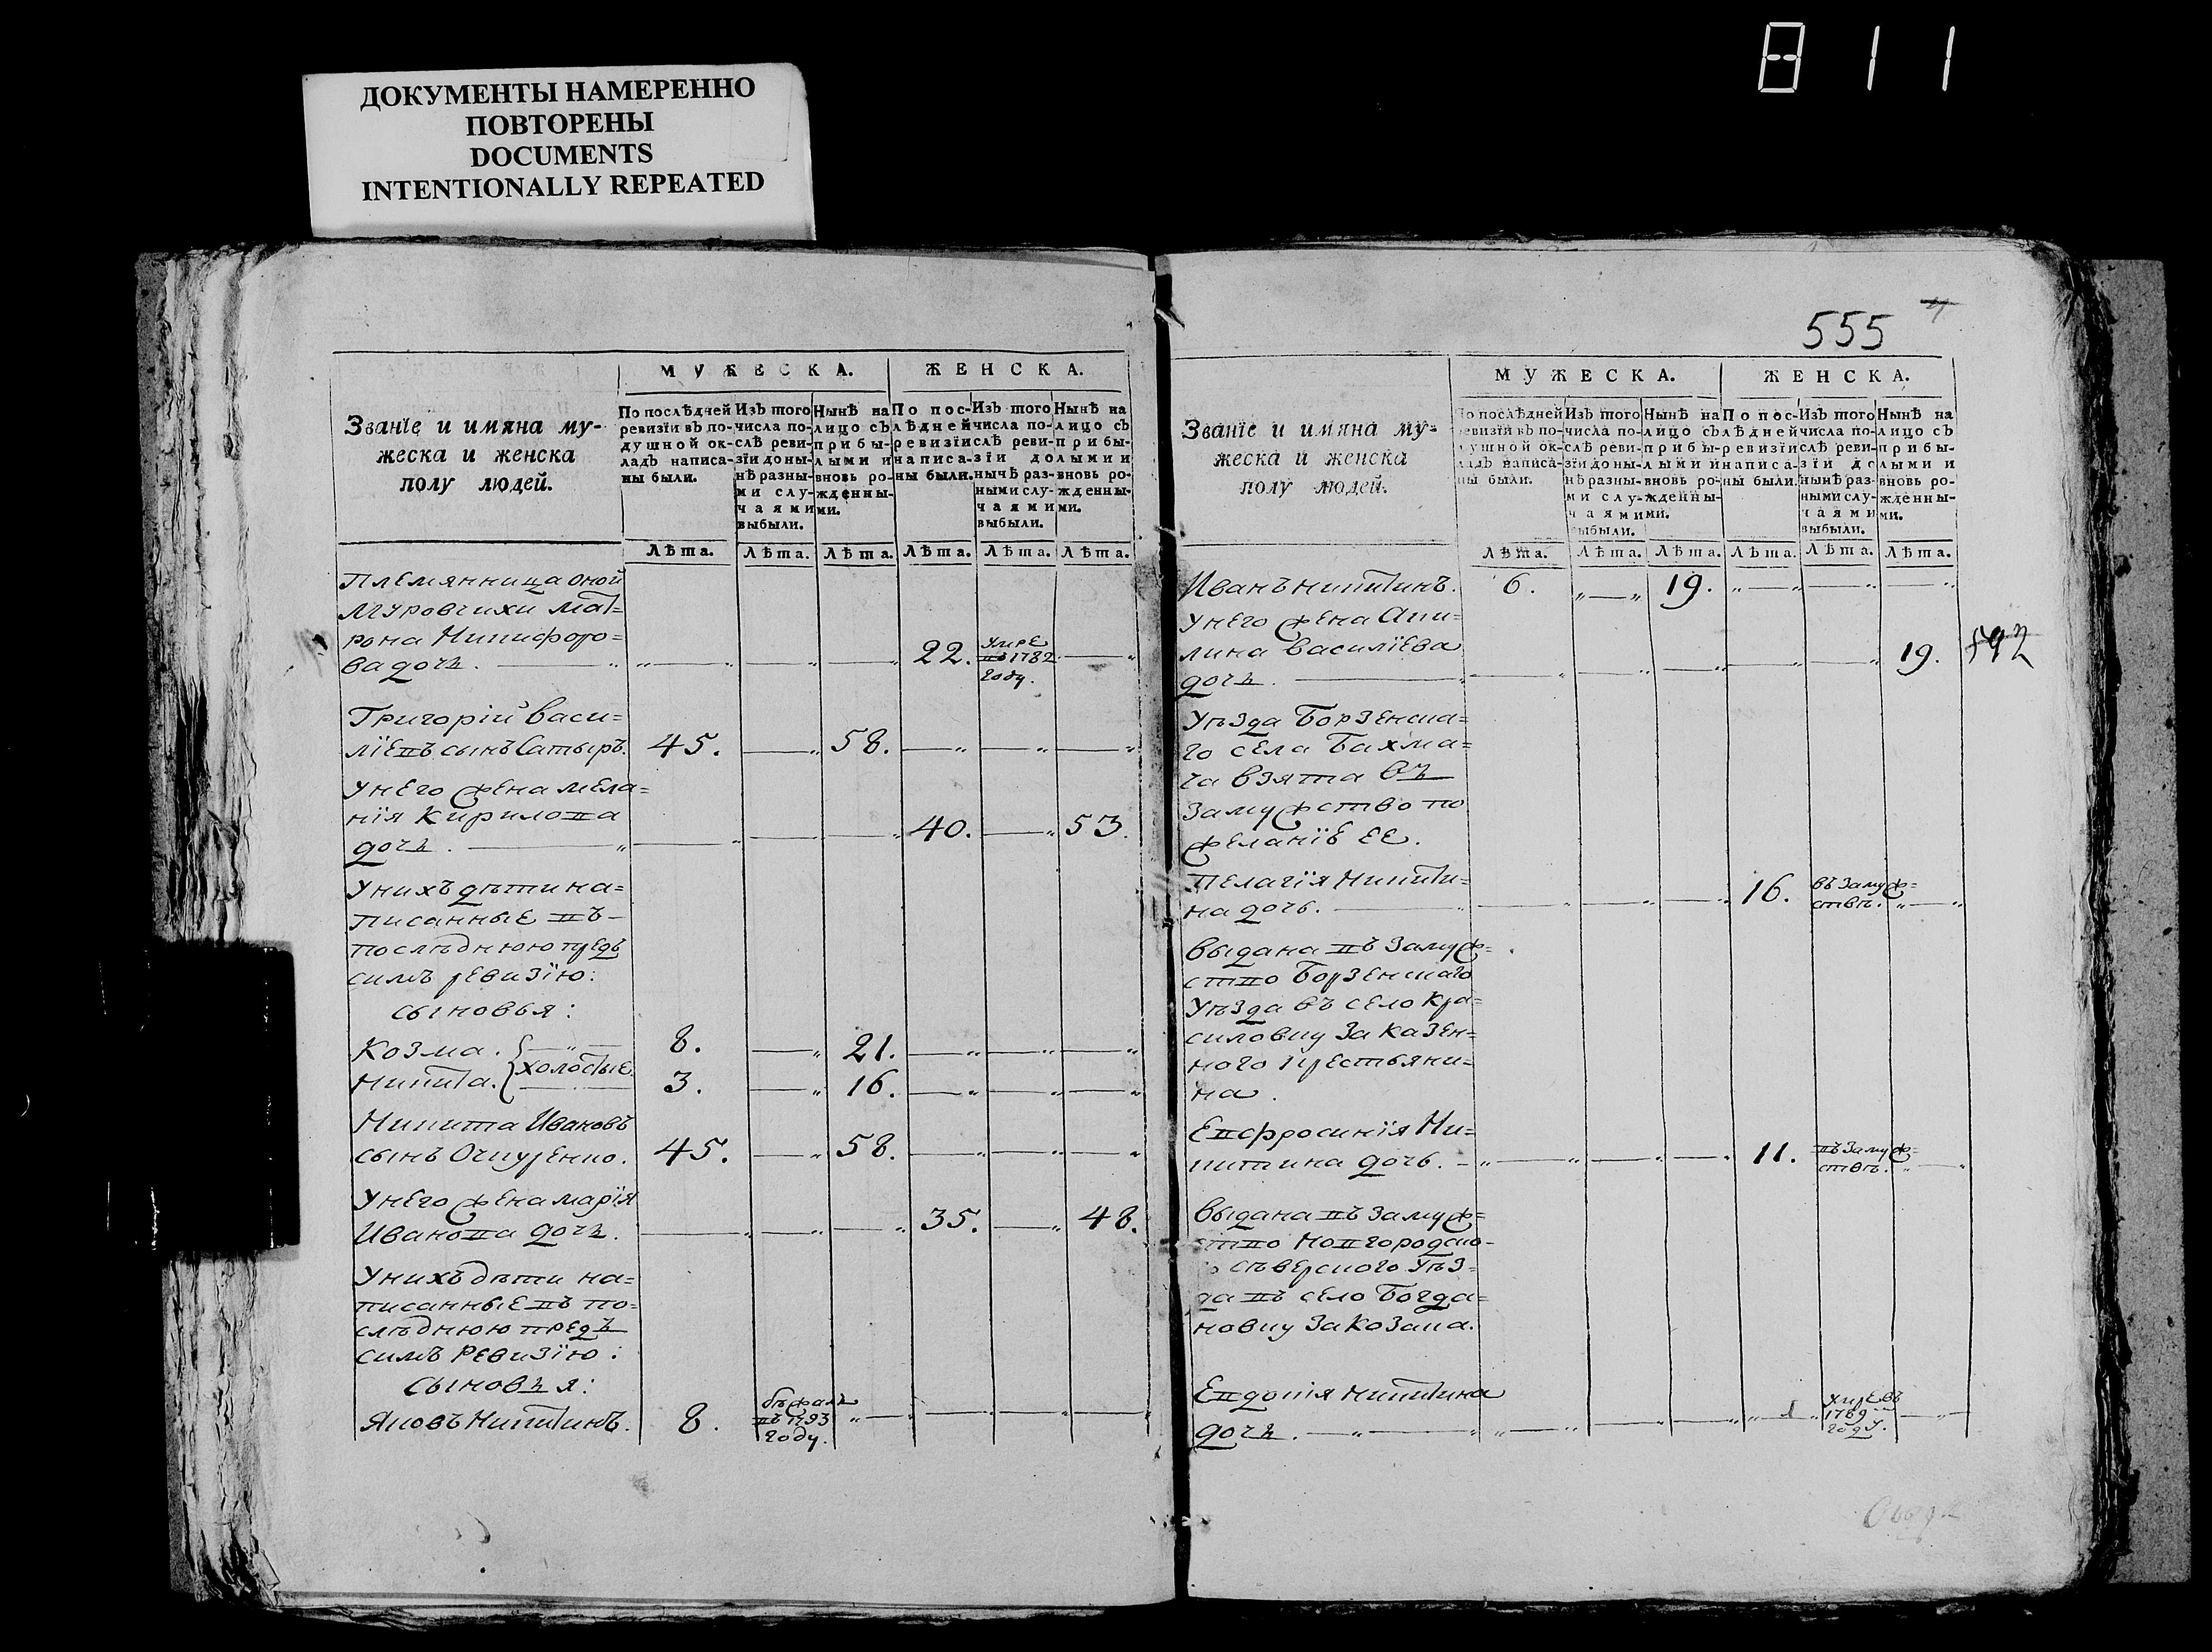 811
ДОКУМЕНТЫ НАМЕРЕННО
ПОВТОРЕНЫ
DOCUMENTS
INTENTIONALLY REPEATED
Званїе и имяна му-
жеска и женска
полу людей.
МУЖЕСКА.
ЖЕНСКА.
По послѣдней ревизїи въ подушной окладъ написаны были.
Изъ того числа послѣ ревизїи донынѣ разными случаями выбыли.
Нынѣ на лицо съ прибылыми и вновь рожденными.
По послѣдней ревизїи написаны были.
Изъ того числа послѣ ревизїи до нычѣ разными случаями выбыли.
Нынѣ на лицо съ прибылыми и вновь рожденными.
Лѣта. Лѣта. Лѣта. Лѣта. Лѣта. Лѣта.
Племянница оной
Муровчихи Мат=
рона Никифоро=
ва дочь. 22. умре въ 1782 году.
Григорїй Васи=
лїевъ сынъ Сатыръ. 45. 58.
У него жена Мела=
нїя Кирилова
дочь. 40. 53.
У нихъ дѣти на=
писанные въ
послѣднюю предъ
симъ ревизїю:
сыновья:
Козма. 8. 21.
холостые
Никита. 3. 16.
Никита Ивановъ
сынъ 45. 58.
У него жена Марїя
Иванова дочь. 35. 48.
У нихъ дѣти на=
писанные въ по=
слѣднюю предъ
симъ ревизїю:
сыновья:
Яковъ Никитинъ. 8. бѣжалъ въ 1793 году.
555
Званїе и имяна му-
жеска и женска
полу людей.
МУЖЕСКА.
ЖЕНСКА.
По послѣдней ревизїи въ подушной окладъ написаны были.
Изъ того числа послѣ ревизїи донынѣ разными случаями выбыли.
Нынѣ на лицо съ прибылыми и вновь рожденными.
По послѣдней ревизїи написаны были.
Изъ того числа послѣ ревизїи до нынѣ разными случаями выбыли.
Нынѣ на лицо съ прибылыми и вновь рожденными.
Лѣта. Лѣта. Лѣта. Лѣта. Лѣта. Лѣта.
Иванъ Никитинъ. 6. 19.
У него жена Аки=
лина Василїева
дочь. 19.
Уѣзда Борзенска=
го села Бахма=
ча взята въ
замужство по
желанїе ее.
Пелагїя Никити=
на дочь. 16. въ замуж=ствѣ.
Выдана въ замуж=
ство Борзенскаго
уѣзда въ село Кра=
силовку за казен=
ного крестьяни=
на.
Евфросинїя Ни=
китина дочь. 11. въ замуж=ствѣ.
Выдана въ замуж=
ство Новгородско-
сѣверского уѣз=
да въ село Богда=
новку за козака.
Евдокїя Никитина
дочь. 1 умре въ 1789 году.